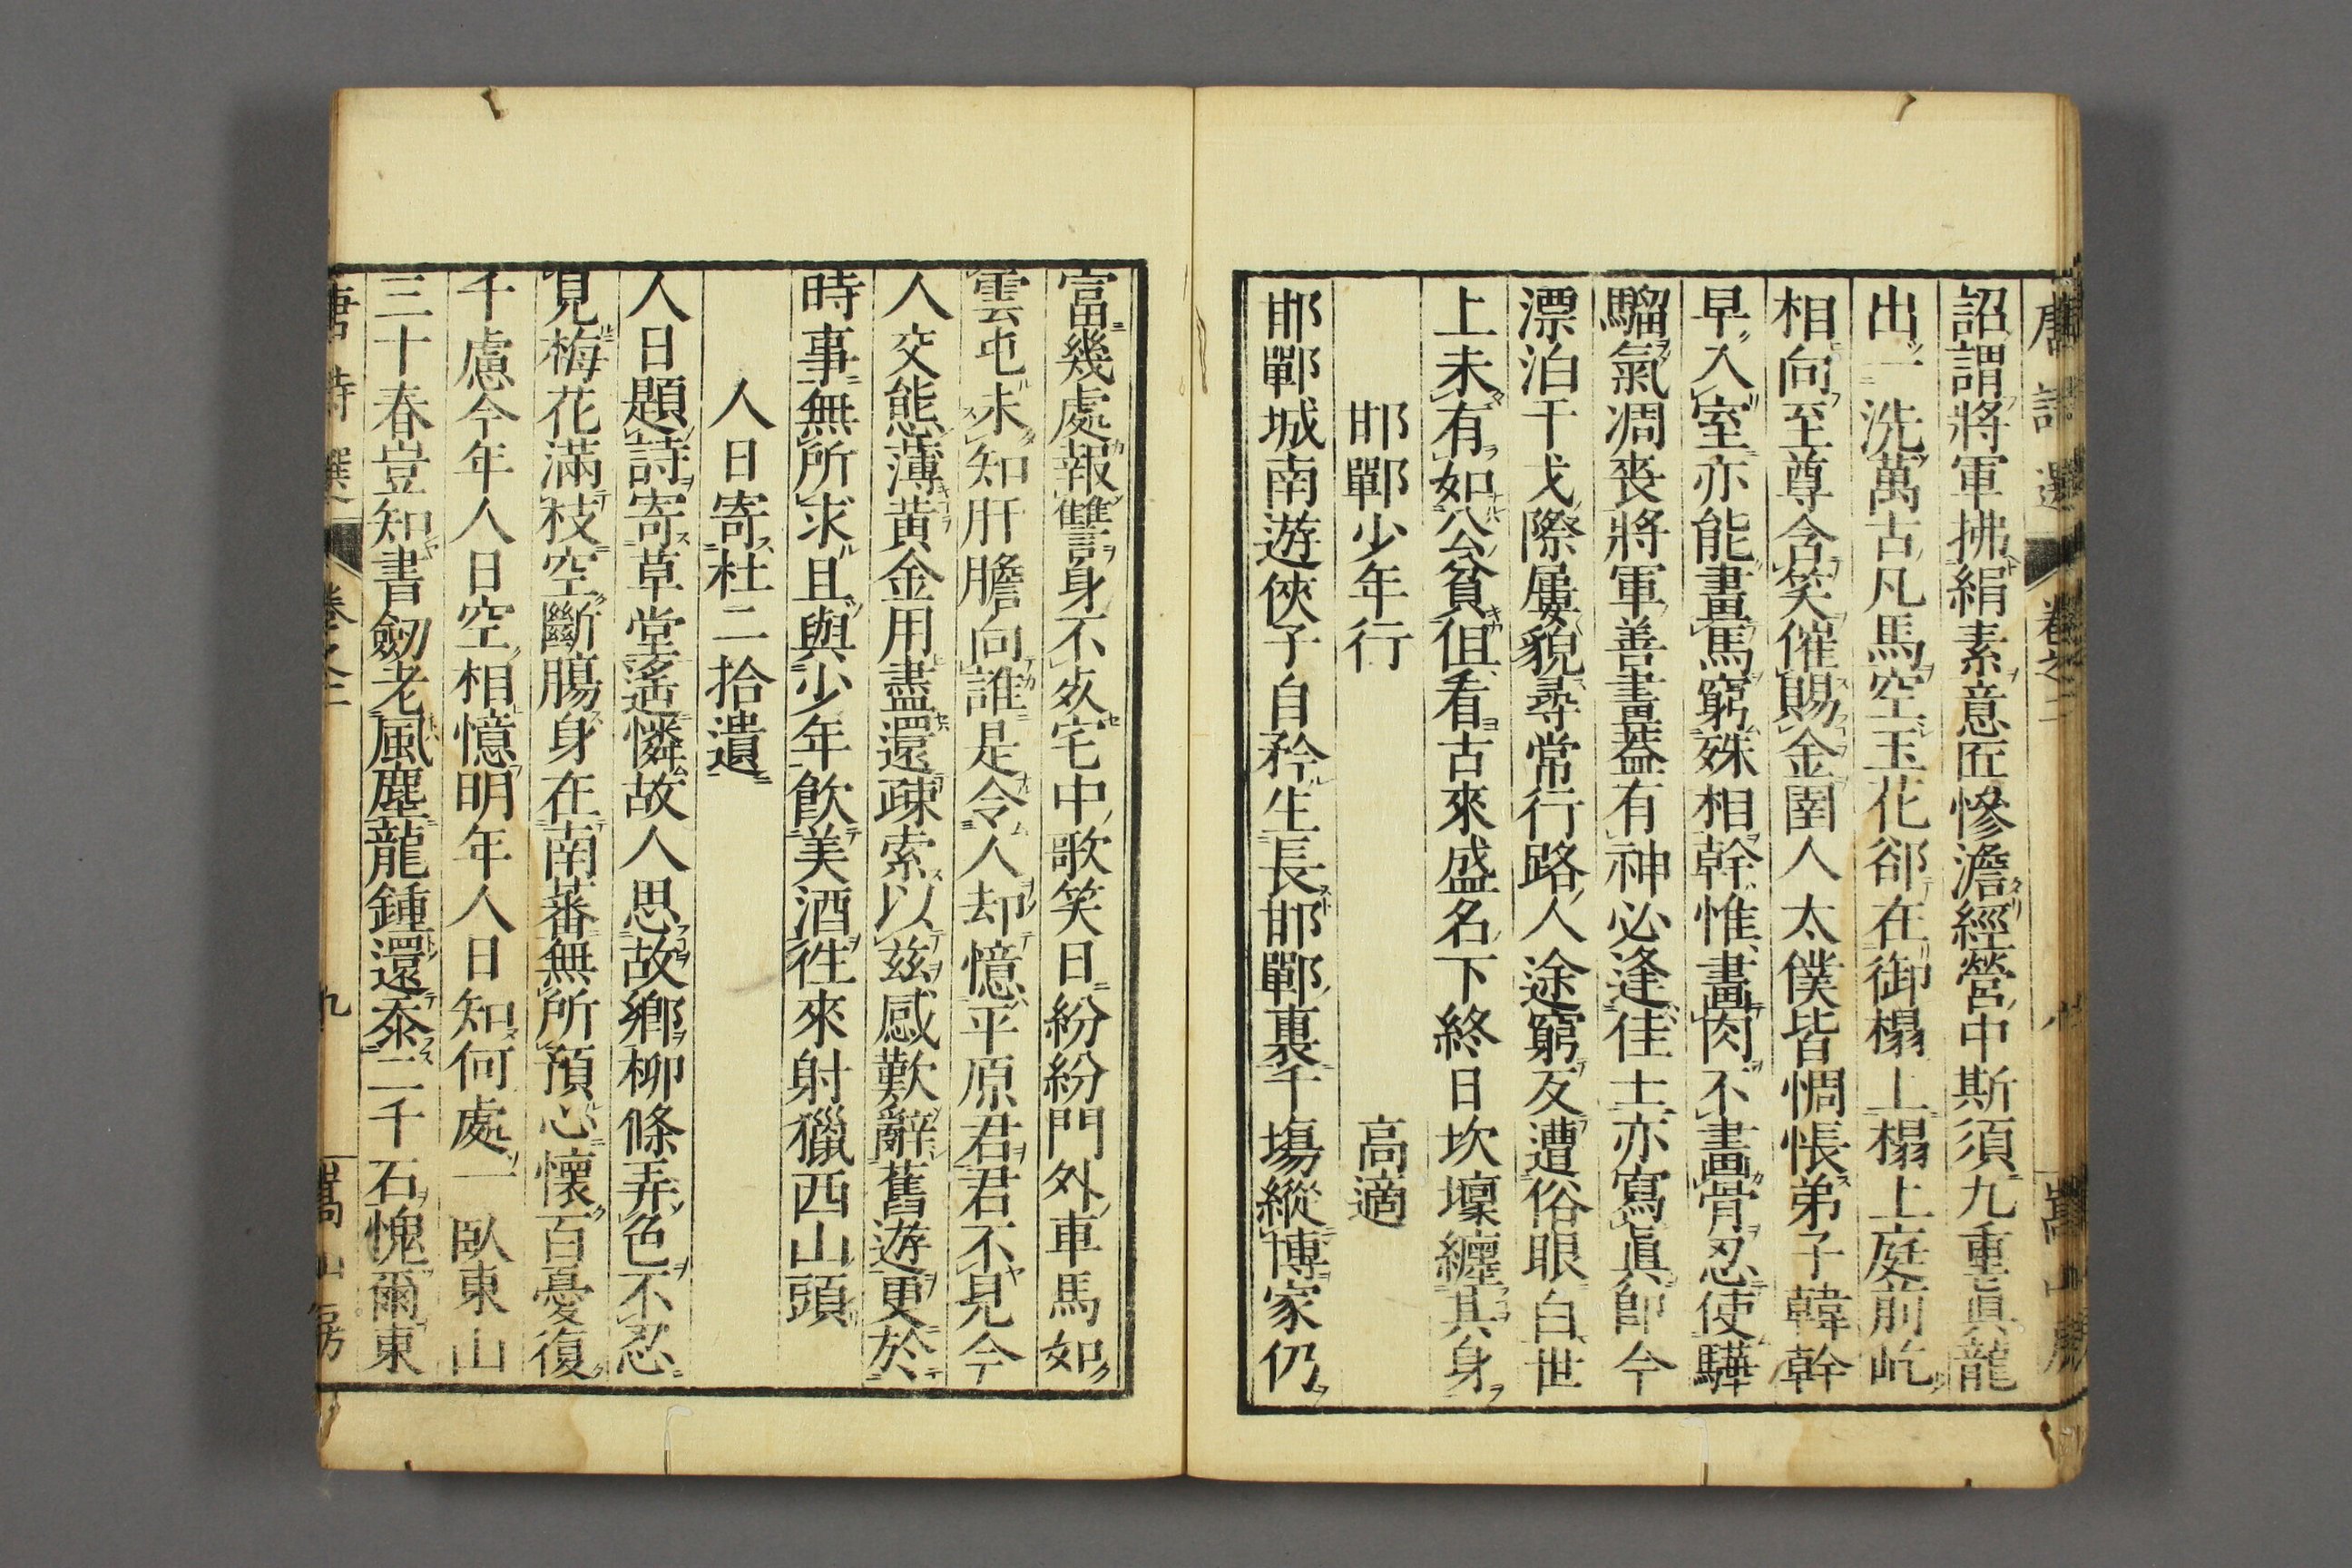 唐詩選 卷之二 八 嵩山房
詔謂將軍拂絹素意匠慘澹經營中斯須九重眞龍
出一洗萬古凡馬空玉花郤在御榻上榻上庭前屹
相向至尊含笑催賜金圉人太僕皆惆悵弟子韓幹
早入室亦能畫馬窮姝相幹惟畫肉不畫骨忍使驊
騮氣凋喪將軍善畫蓋有神必逢佳士亦寫眞卽今
漂泊干戈際屢貌尋常行路人途窮反遭俗眼白世
上未有如公貧但看古來盛名下終日坎壈纏其身
邯鄲少年行 高適
邯鄲城南遊俠子自矜生長邯鄲裏千塲縱博家仍
富幾處報讐身不死宅中歌笑日紛紛門外車馬如
雲屯未知肝膽向誰是令人却憶平原君君不見今
人交態薄黄金用盡還疎索以茲感歎辭舊遊更於
時事無所求且與少年飮美酒徃來射獵西山頭
人日寄杜二拾遺
人日題詩寄草堂遙憐故人思故鄉柳條弄色不忍
見梅花滿枝空斷膓身在南蕃無所預心懷百憂復
千慮今年人日空相憶明年人日知何處一臥東山
三十春豈知書劔老風塵龍鍾還忝二千石愧爾東
唐詩選 卷之二 九 嵩山房